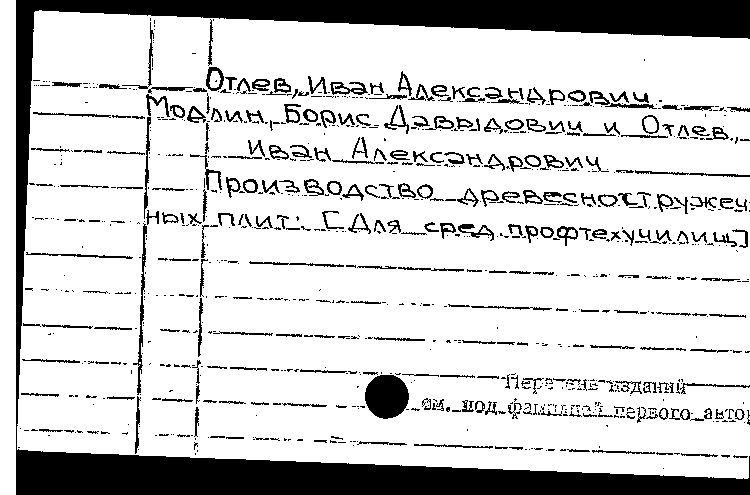 Отлев, Иван Александрович.
Модлин, Борис Давыдович и Отлев,
Иван Александрович
Производство древесностружеч
ных плит. [Для сред. профтехучилищ]
Перечень изданий
см. под фамилией первого автор